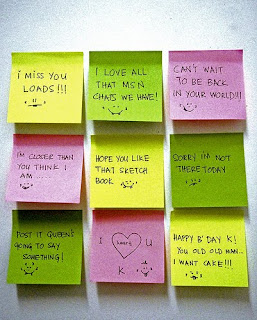 i MISS YOU
LOADS!!!
I LOVE ALL
THAT MSN
CHATS WE HAVE!
CAN'T WAIT
TO BE BACK
IN YOUR WORLD!!!
I'M CLOSER THAN
YOU THINK I
AM....
HOPE YOU LIKE
THAT SKETCH
BOOK
SORRY I'M NOT
THERE TODAY
POST IT QUEEN'S
GOING TO SAY
SOMETHING!
I heart U
K
HAPPY B'DAY K!
YOU OLD OLD MAN..
I WANT CAKE!!!